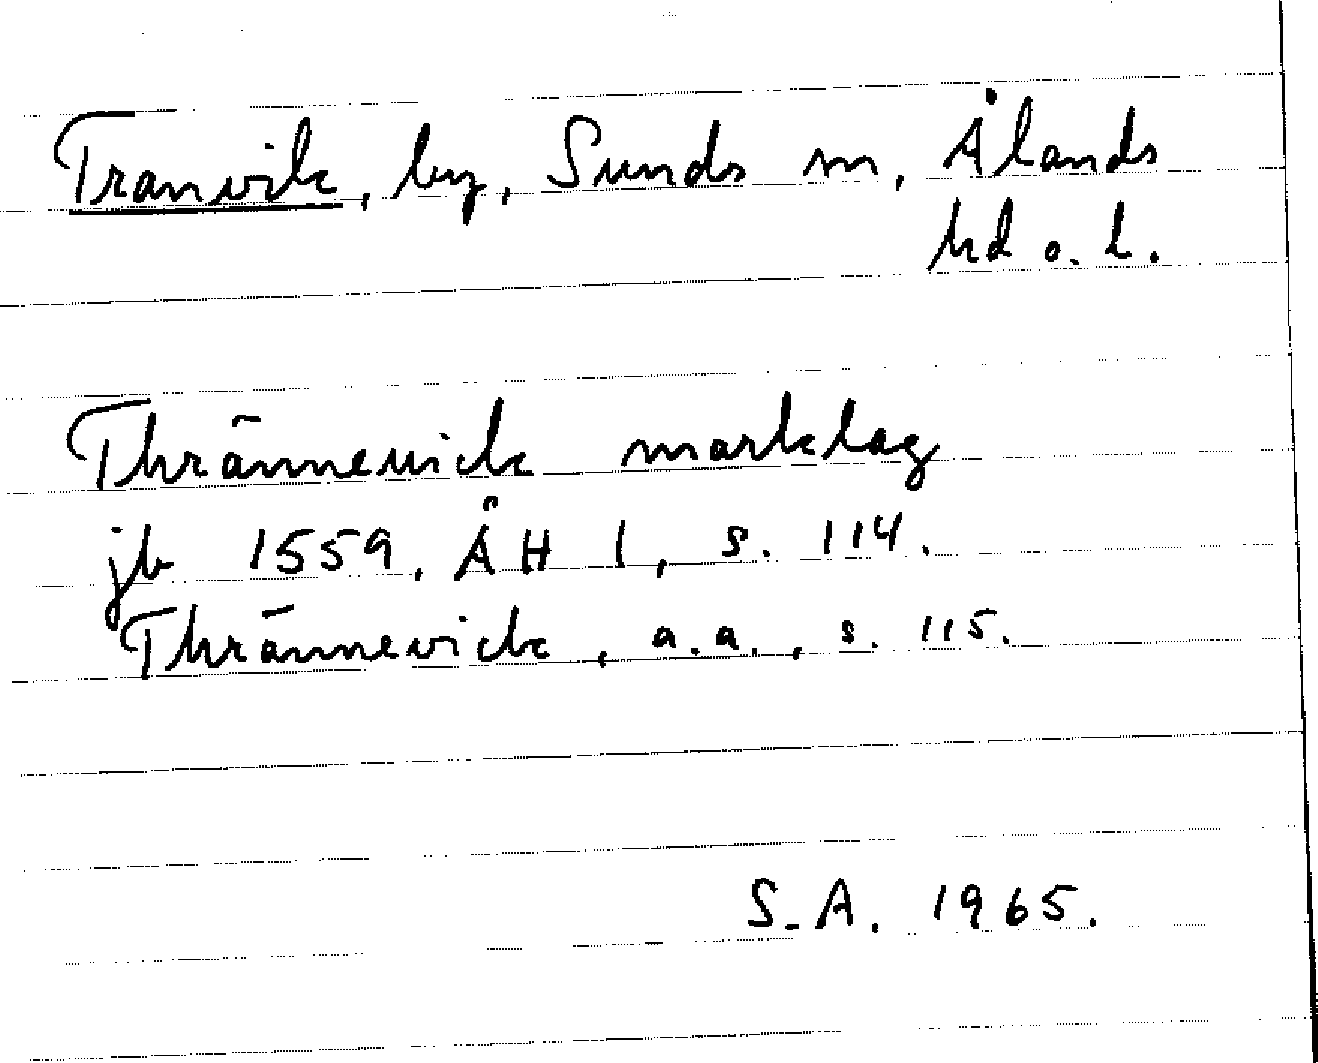 Tranvik, by, Sunds sn, Ålands
hd o. l.
Thrānneuick marklag
jb 1559, ÅH I, s. 114.
Thrānnevick, a.a., s. 115.
S.A. 1965.